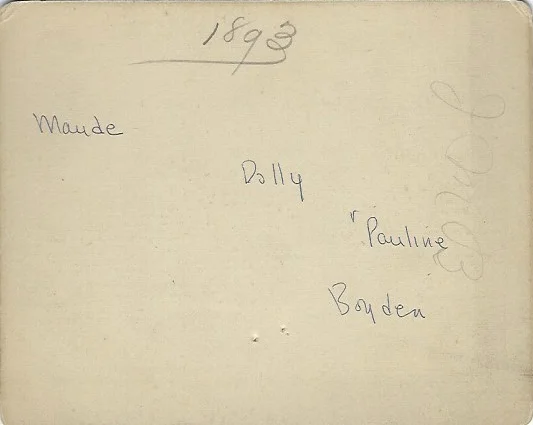 1893
Maude
Dolly
"Pauline
Boyden